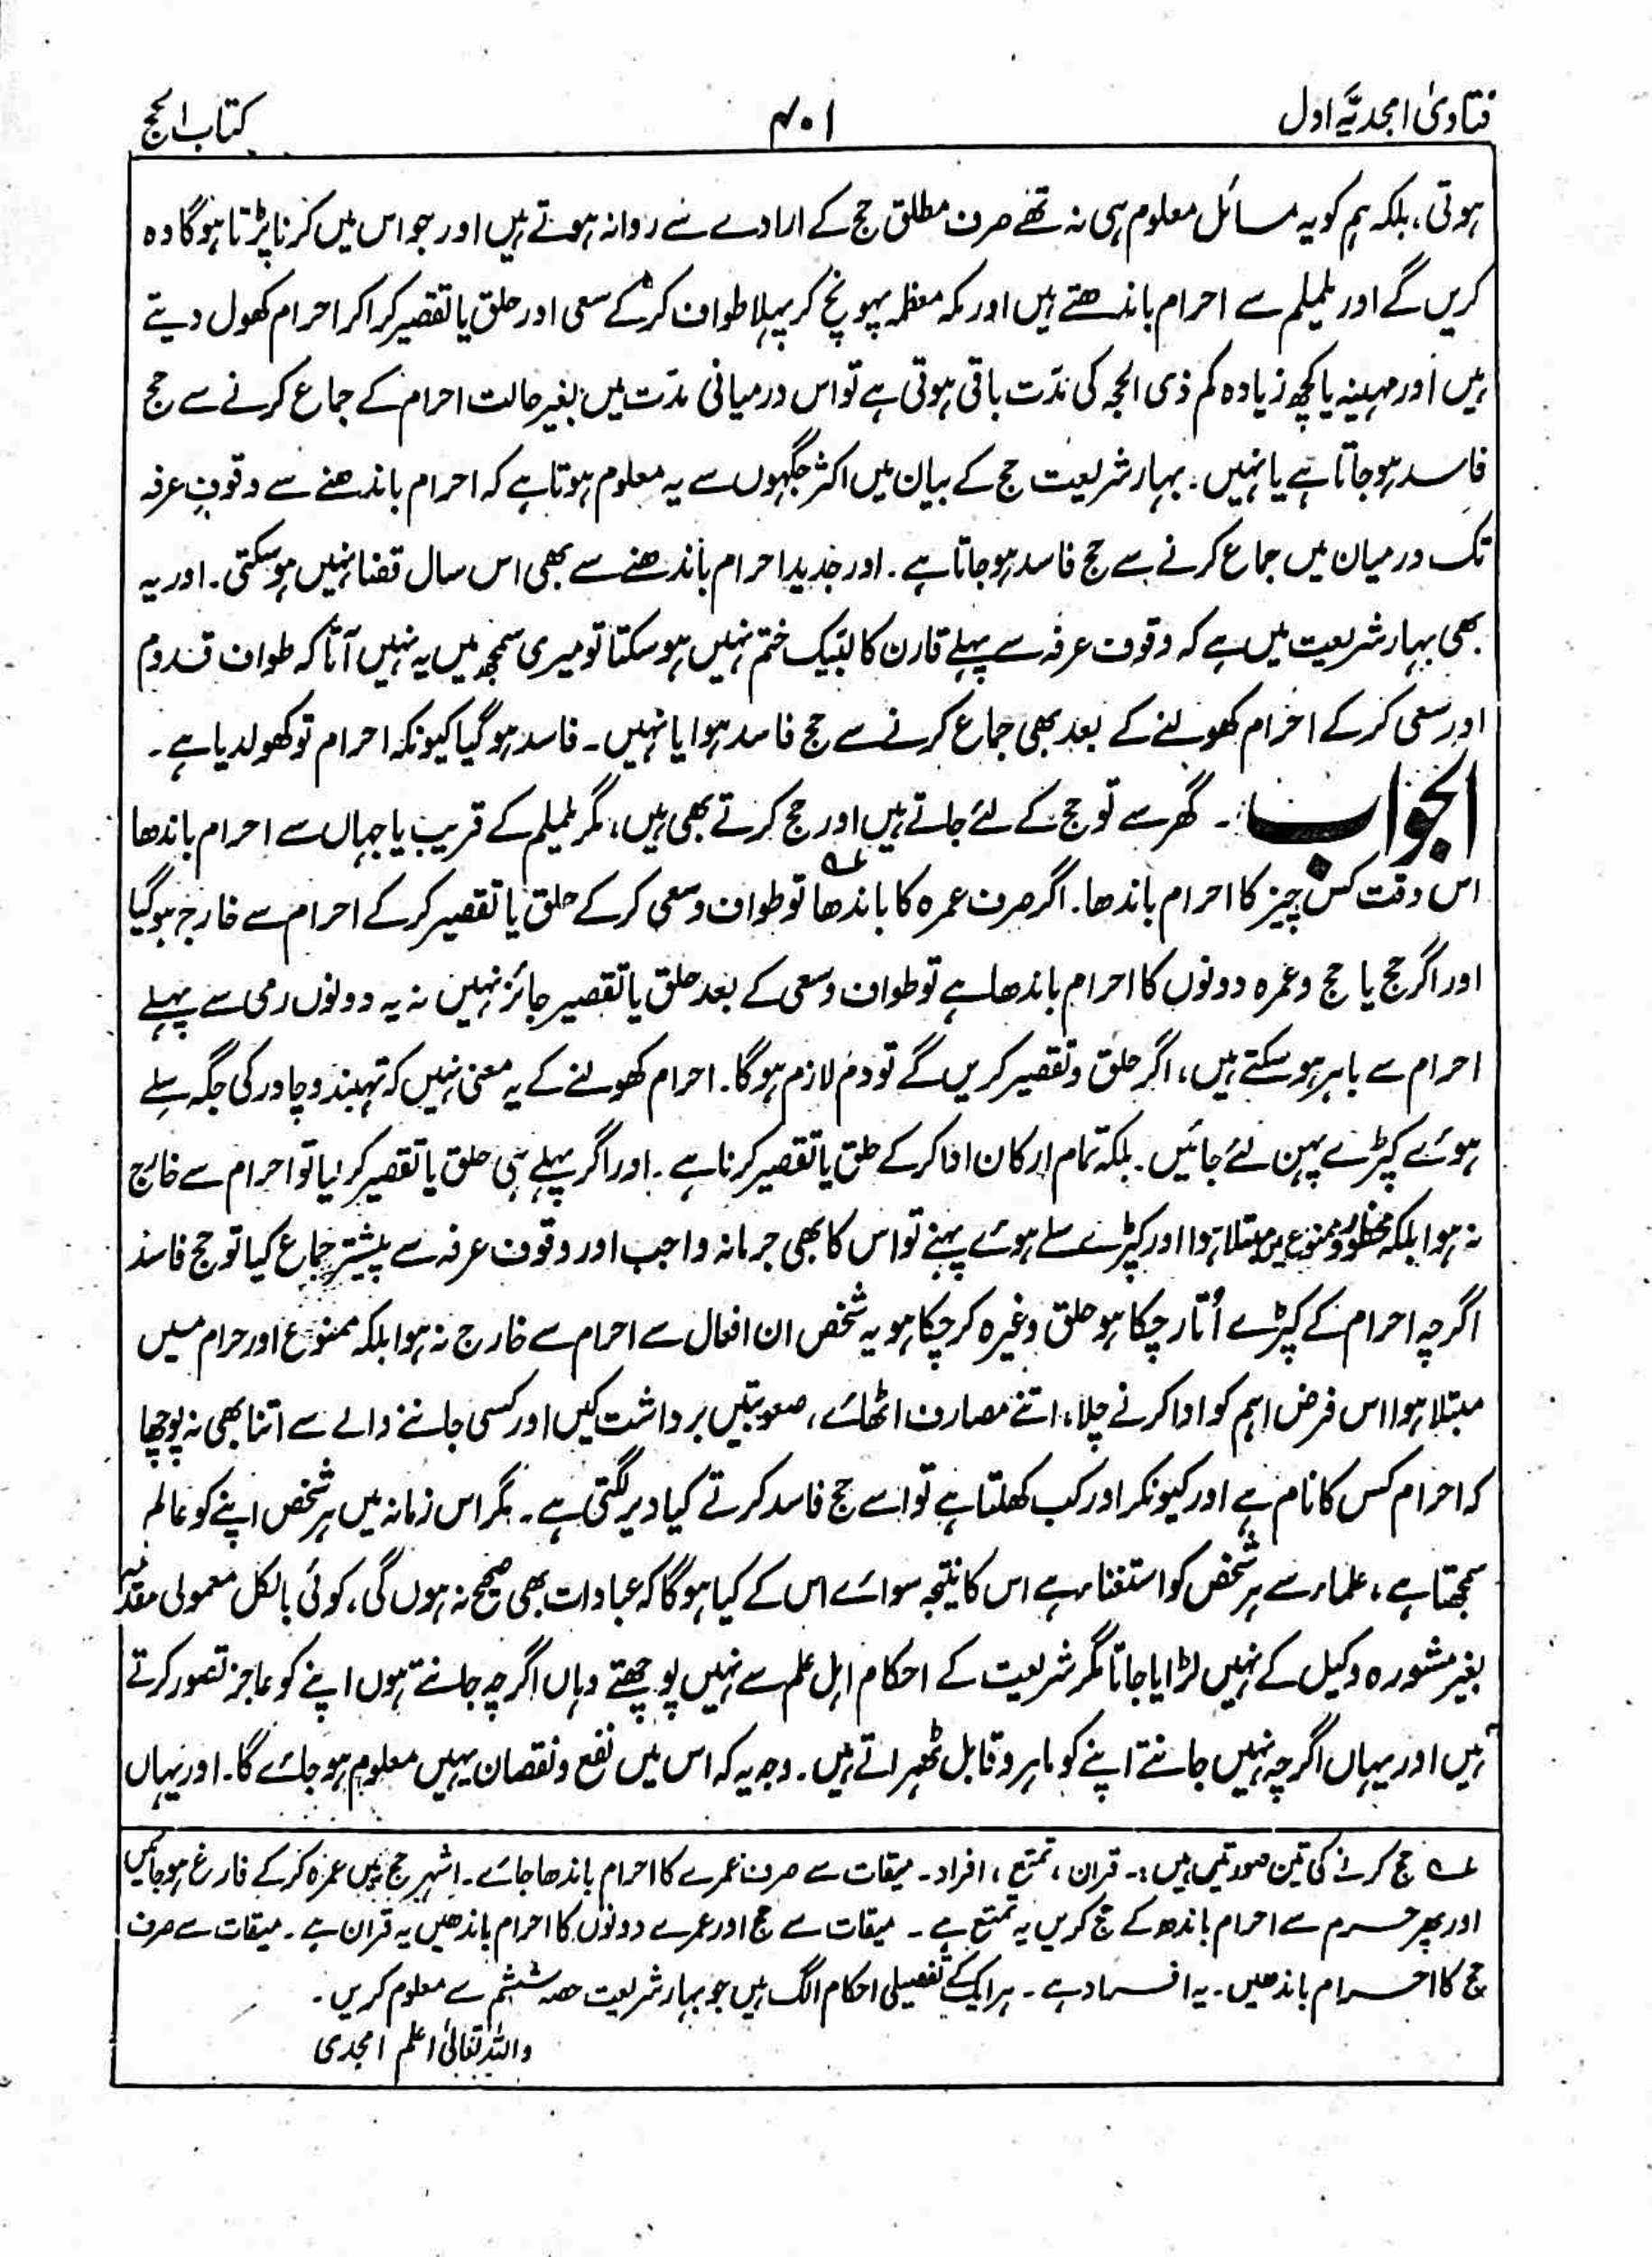 فتاویٰ امجدیہ اول
۴۰۱
کتاب الحج
ہوتی، بلکہ ہم کو یہ مسائل معلوم ہی نہ تھے صرف مطلق حج کے ارادے سے روانہ ہوتے ہیں اور جو اس میں کرنا پڑتا ہوگا وہ
کریں گے اور یلملم سے احرام باندھتے ہیں اور مکہ معظمہ پہونچ کر پہلا طواف کرکے سعی اور حلق یا تقصیر کراکر احرام کھول دیتے
ہیں اور مہینہ یا کچھ زیادہ کم ذی الحجہ کی مدّت باقی ہوتی ہے تو اس درمیانی مدّت میں بغیر حالت احرام کے جماع کرنے سے حج
فاسد ہوجاتا ہے یا نہیں۔ بہار شریعت حج کے بیان میں اکثر جگہوں سے یہ معلوم ہوتا ہے کہ احرام باندھنے سے وقوفِ عرفہ
تک درمیان میں جماع کرنے سے حج فاسد ہوجاتا ہے۔ اور جدید احرام باندھنے سے بھی اس سال قضا نہیں ہوسکتی۔ اور یہ
بھی بہار شریعت میں ہے کہ وقوف عرفہ سے پہلے قارن کا لبّیک ختم نہیں ہوسکتا تو میری سمجھ میں یہ نہیں آتا کہ طواف قدوم
اور سعی کرکے احرام کھولنے کے بعد بھی جماع کرنے سے حج فاسد ہوا یا نہیں۔ فاسد ہوگیا کیونکہ احرام تو کھولدیا ہے۔
الجواب :۔ گھر سے تو حج کے لئے جاتے ہیں اور حج کرتے بھی ہیں، مگر یلملم کے قریب یا جہاں سے احرام باندھا
اس وقت کس چیز کا احرام باندھا۔ اگر صرف عمرہ کا باندھا عہ تو طواف وسعی کرکے حلق یا تقصیر کرکے احرام سے خارج ہوگیا
اور اگر حج یا حج وعمرہ دونوں کا احرام باندھا ہے تو طواف وسعی کے بعد حلق یا تقصیر جائز نہیں نہ یہ دونوں رمی سے پہلے
احرام سے باہر ہوسکتے ہیں، اگر حلق وتقصیر کریں گے تو دم لازم ہوگا۔ احرام کھولنے کے یہ معنی نہیں کہ تہبند وچادر کی جگہ سلے
ہوئے کپڑے پہن لئے جائیں۔ بلکہ تمام ارکان ادا کرکے حلق یا تقصیر کرنا ہے۔ اور اگر پہلے ہی حلق یا تقصیر کرلیا تو احرام سے خارج
نہ ہوا بلکہ محظور وممنوع میں مبتلا ہوا اور کپڑے سلے ہوئے پہنے تو اس کا بھی جرمانہ واجب اور وقوف عرفہ سے پیشتر جماع کیا تو حج فاسد
اگرچہ احرام کے کپڑے اُتار چکا ہو حلق وغیرہ کرچکا ہو یہ شخص ان افعال سے احرام سے خارج نہ ہوا بلکہ ممنوع اور حرام میں
مبتلا ہوا اس فرض اہم کو ادا کرنے چلا، اتنے مصارف اٹھائے، صعوبتیں برداشت کیں اور کسی جاننے والے سے اتنا بھی نہ پوچھا
کہ احرام کس کا نام ہے اور کیونکر اور کب کھلتا ہے تو اسے حج فاسد کرتے کیا دیر لگتی ہے۔ مگر اس زمانہ میں ہر شخص اپنے کو عالم
سمجھتا ہے، علماء سے ہر شخص کو استغناء ہے اس کا نتیجہ سوائے اس کے کیا ہوگا کہ عبادات بھی صحیح نہ ہوں گی، کوئی بالکل معمولی مقدمہ
بغیر مشورہ وکیل کے نہیں لڑایا جاتا مگر شریعت کے احکام اہل علم سے نہیں پوچھتے وہاں اگرچہ جانتے ہوں اپنے کو عاجز تصور کرتے
ہیں اور یہاں اگرچہ نہیں جانتے اپنے کو ماہر وقابل ٹھہراتے ہیں۔ وجہ یہ کہ اس میں نفع ونقصان یہیں معلوم ہوجائے گا۔ اور یہاں
عہ حج کرنے کی تین صورتیں ہیں:۔ قران، تمتع، افراد۔ میقات سے صرف عمرے کا احرام باندھا جائے۔ اشہر حج میں عمرہ کرکے فارغ ہوجائیں
اور پھر حرم سے احرام باندھ کے حج کریں یہ تمتع ہے۔ میقات سے حج اور عمرے دونوں کا احرام باندھیں یہ قران ہے۔ میقات سے صرف
حج کا احرام باندھیں۔ یہ افراد ہے۔ ہر ایک کے تفصیلی احکام الگ ہیں جو بہار شریعت حصہ ششم سے معلوم کریں۔
واللہ تعالیٰ اعلم امجدی